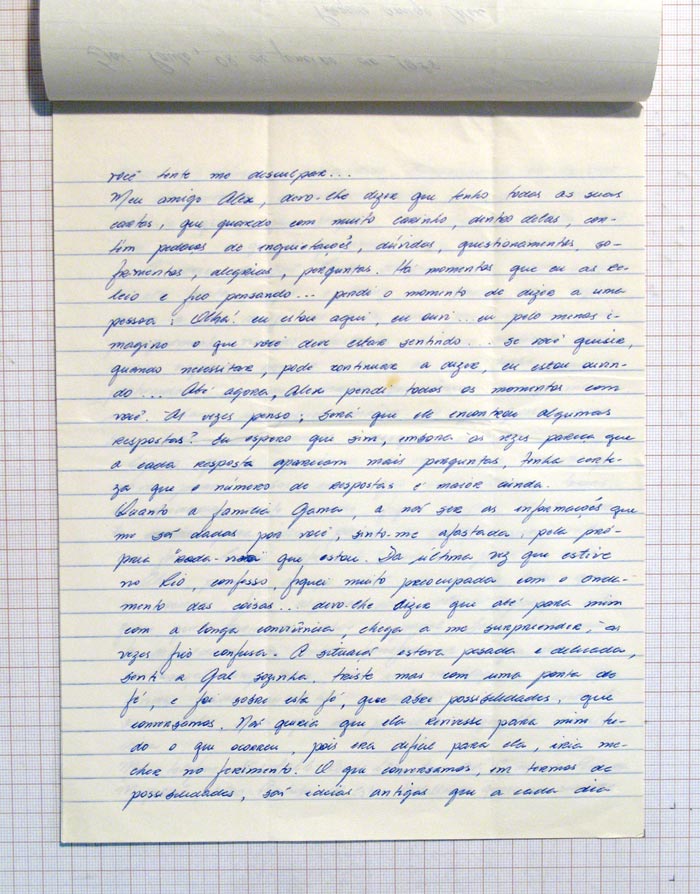 você tente me desculpar...
Meu amigo Alex, devo-lhe dizer que tenho todas as suas
cartas, que guardo com muito carinho, dentro delas, con-
têm pedaços de inquietações, dúvidas, questionamentos, so-
frimentos, alegrias, perguntas. Há momentos que eu as re-
leio e fico pensando... perdi o momento de dizer a uma
pessoa: Olha! eu estou aqui, eu ouvi... eu pelo menos i-
magino o que você deve estar sentindo... se você quiser,
quando necessitar, pode continuar a dizer, eu estou ouvin-
do... Até agora, Alex perdi todos os momentos com
você. Às vezes penso; Será que ele encontrou algumas
respostas? Eu espero que sim, embora às vezes pareça que
a cada resposta aparecem mais perguntas, tenha certe-
za que o número de respostas é maior ainda.
Quanto a família Gama, a não ser as informações que
me são dadas por você, sinto-me afastada, pela pró-
pria que estou. Da última vez que estive
no Rio, confesso, fiquei muito preocupada com o anda-
mento das coisas... devo-lhe dizer que até para mim
com a longa convivência, chega a me surpreender, às
vezes fico confusa. A situação estava pesada e delicada,
senti a Gal sozinha, triste mas com uma ponta de
fé, e foi sobre esta fé, que abre possibilidades, que
conversamos. Não queria que ela revivesse para mim tu-
do o que ocorreu, pois era difícil para ela, iria me-
cher no ferimento. O que conversamos, em termos de
possibilidades, são ideias antigas que a cada dia